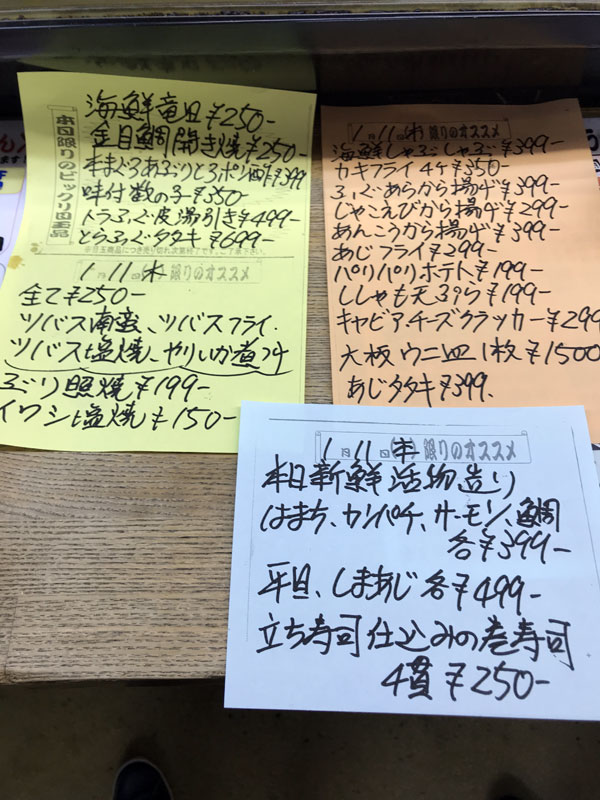 本日限りのビックリ目玉品
海鮮竜田¥250-
金目鯛開き焼¥250-
本まぐろあぶりとろポン酢¥399
味付数の子¥350-
トラふぐ皮湯引き¥499-
とらふぐタタキ¥699-
1月11日(木)限りのオススメ
全て¥250-
ツバス南蛮、ツバスフライ.
ツバス塩焼、やりいか煮つけ
ぶり照焼¥199-
イワシ塩焼¥150-
1月11日(木)限りのオススメ
海鮮しゃぶしゃぶ¥399-
カキフライ4ケ¥350-
ふぐあらから揚げ¥399-
じゃこえびから揚げ¥299-
あんこうから揚げ¥399-
あじフライ¥299-
パリパリポテト¥199-
ししゃも天ぷら¥199-
キャビア・チーズクラッカー¥299
大板ウニ皿1枚¥1500
あじタタキ¥399.
1月11日(木)限りのオススメ
本日新鮮活物造り
はまち、カンパチ、サーモン、鯛
各¥399-
平目、しまあじ各¥499-
立ち寿司仕込みの巻寿司
4貫¥250-